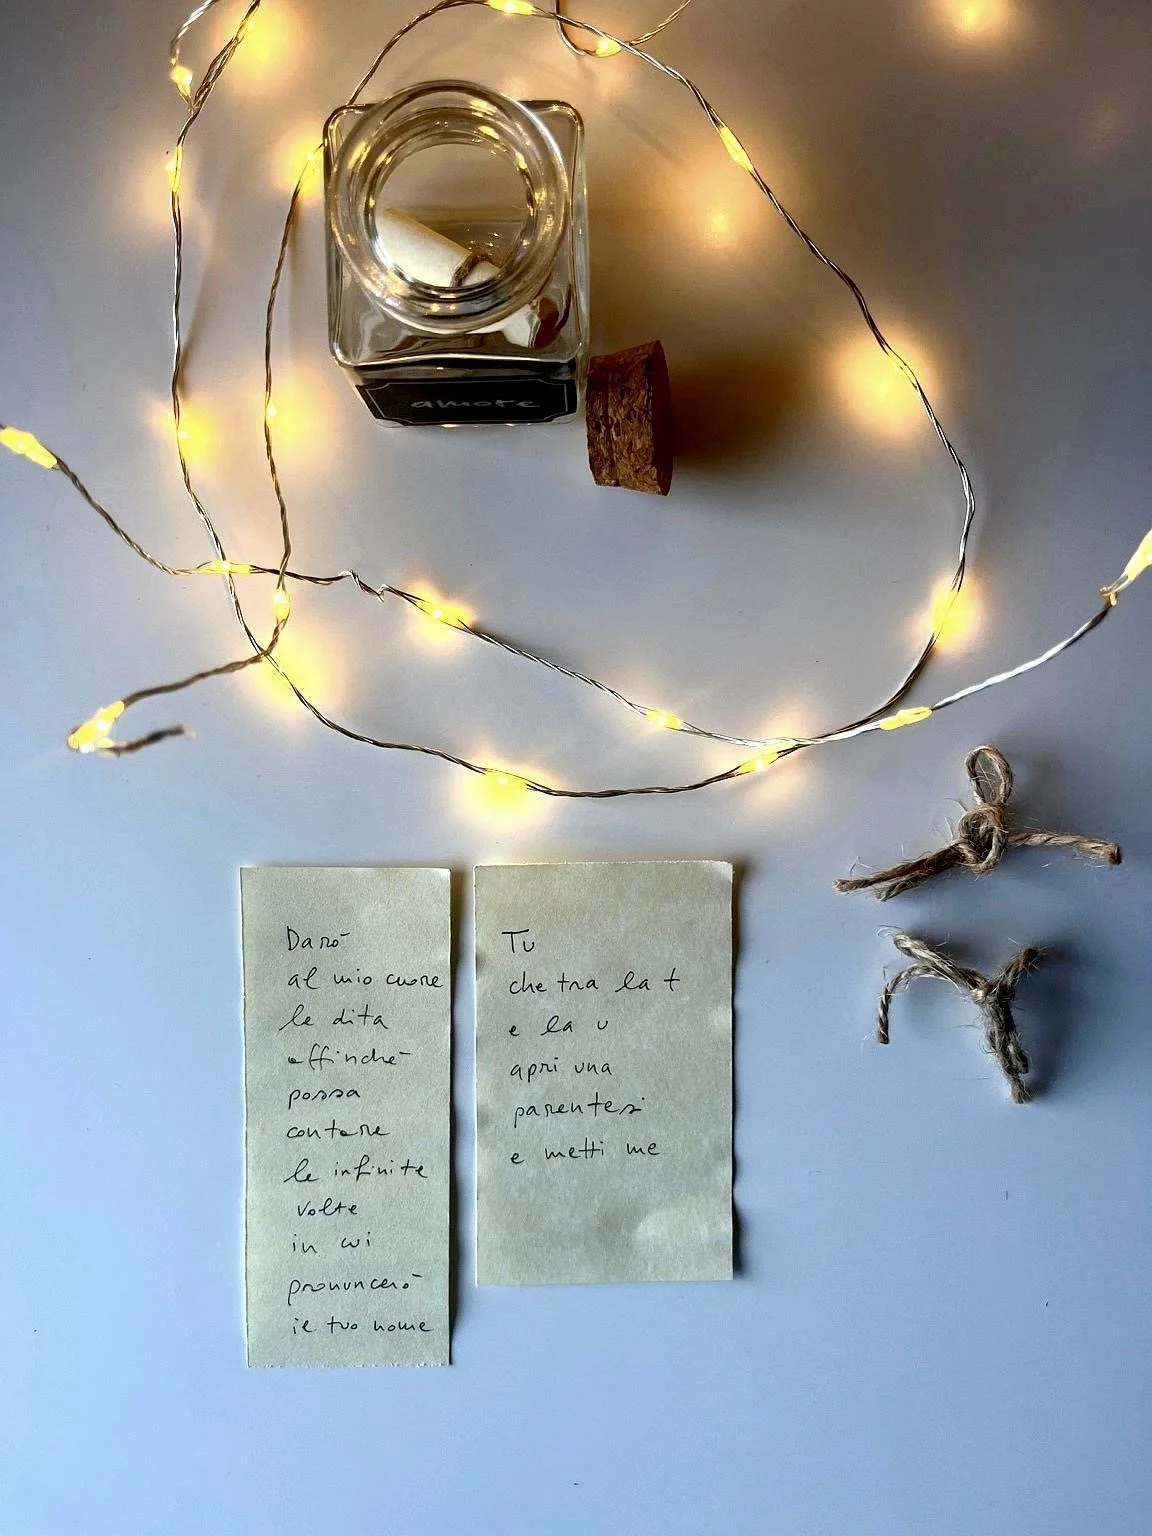 amore
Darò
al mio cuore
le dita
affinché
possa
contare
le infinite
volte
in cui
pronuncerò
il tuo nome
Tu
che tra la t
e la u
apri una
parentesi
e metti me